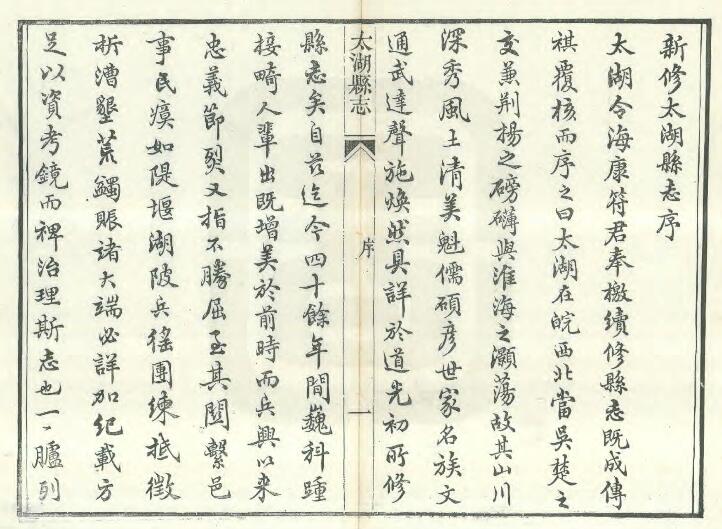 新修太湖縣志序
太湖令海康符君奉檄續修縣志既成傳
祺覆核而序之曰太湖在皖西北當吳楚之
交兼荆揚之磅礴與淮海之灝蕩故其山川
深秀風土清美魁儒碩彦世家名族文
通武達聲施煥然具詳於道光初所修
太湖縣志
序
一
縣志矣自茲迄今四十餘年間巍科踵
接畸人輩出既增美於前時而兵興以來
忠義節烈又指不勝屈至其關繫邑
事民瘼如隄堰湖陂兵徭團練抵徵
析漕墾荒蠲賑諸大端必詳加紀載方
足以資考鏡而裨治理斯志也一〻臚列